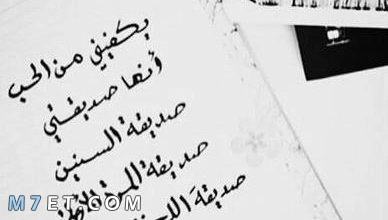 يكفيني من الحب
أنها صديقتي
صديقة السنين
صديقة
صديقة
M7ET.COM